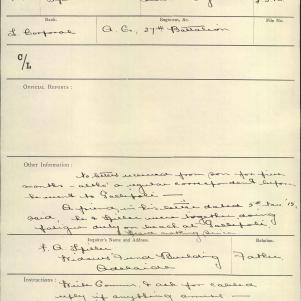 Rank.
Regiment, &c.
File No.
L Corporal
A. Co, 27th Battalion
C/L
Official Reports:
Other Information:
No letters received from son for five
months - altho' a regular correspondent before
he went to Gallipoli -
A friend in his letter dated 5th Nov '15,
said, he & Spiller were together doing
fatigue duty on beach at Gallipoli
heard nothing since
Inquirer's Name and Address.
Relation.
Widows Fund Building
Father
Adelaide
Instructions:
Write Comm. & ask for cabled
reply if anything amiss -